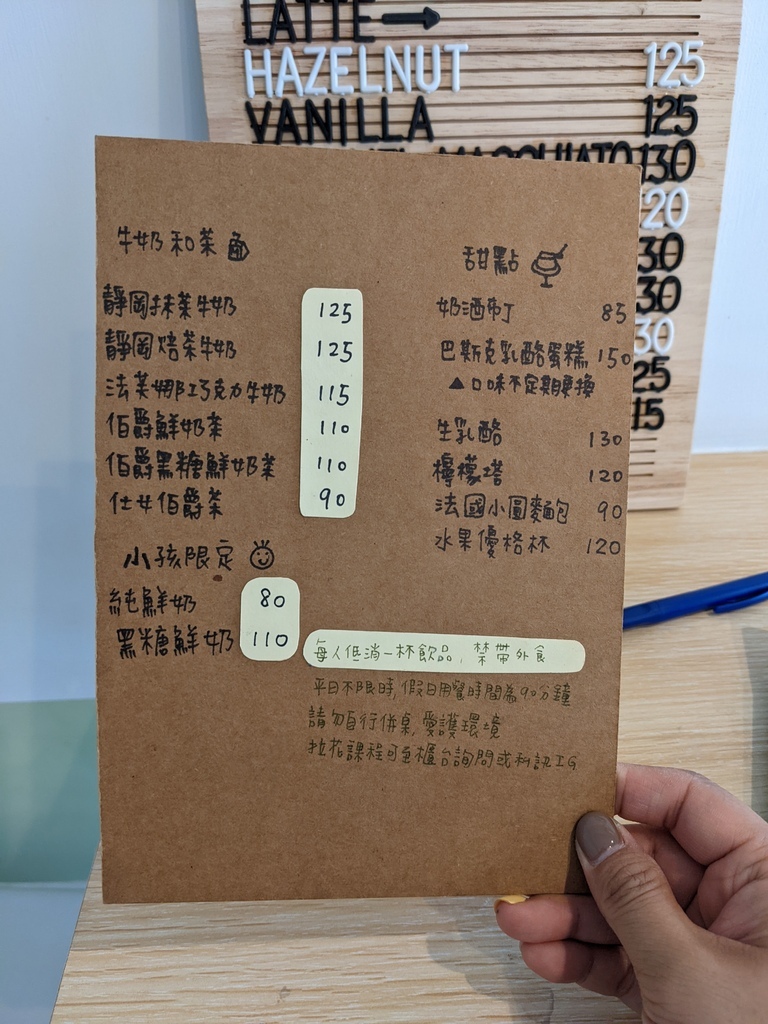 LATTE →
HAZELNUT 125
VANILLA 125
MACCHIATO 130
20
30
30
30
25
15
牛奶和茶
靜岡抹茶牛奶 125
靜岡焙茶牛奶 125
法芙娜巧克力牛奶 115
伯爵鮮奶茶 110
伯爵黑糖鮮奶茶 110
仕女伯爵茶 90
小孩限定
純鮮奶 80
黑糖鮮奶 110
甜點
奶酒布丁 85
巴斯克乳酪蛋糕 150
▲口味不定期更換
生乳酪 130
檸檬塔 120
法國小圓麵包 90
水果優格杯 120
每人低消一杯飲品, 禁帶外食
平日不限時, 假日用餐時間為90分鐘
請勿自行併桌, 愛護環境
拉花課程可至櫃台詢問或私訊IG